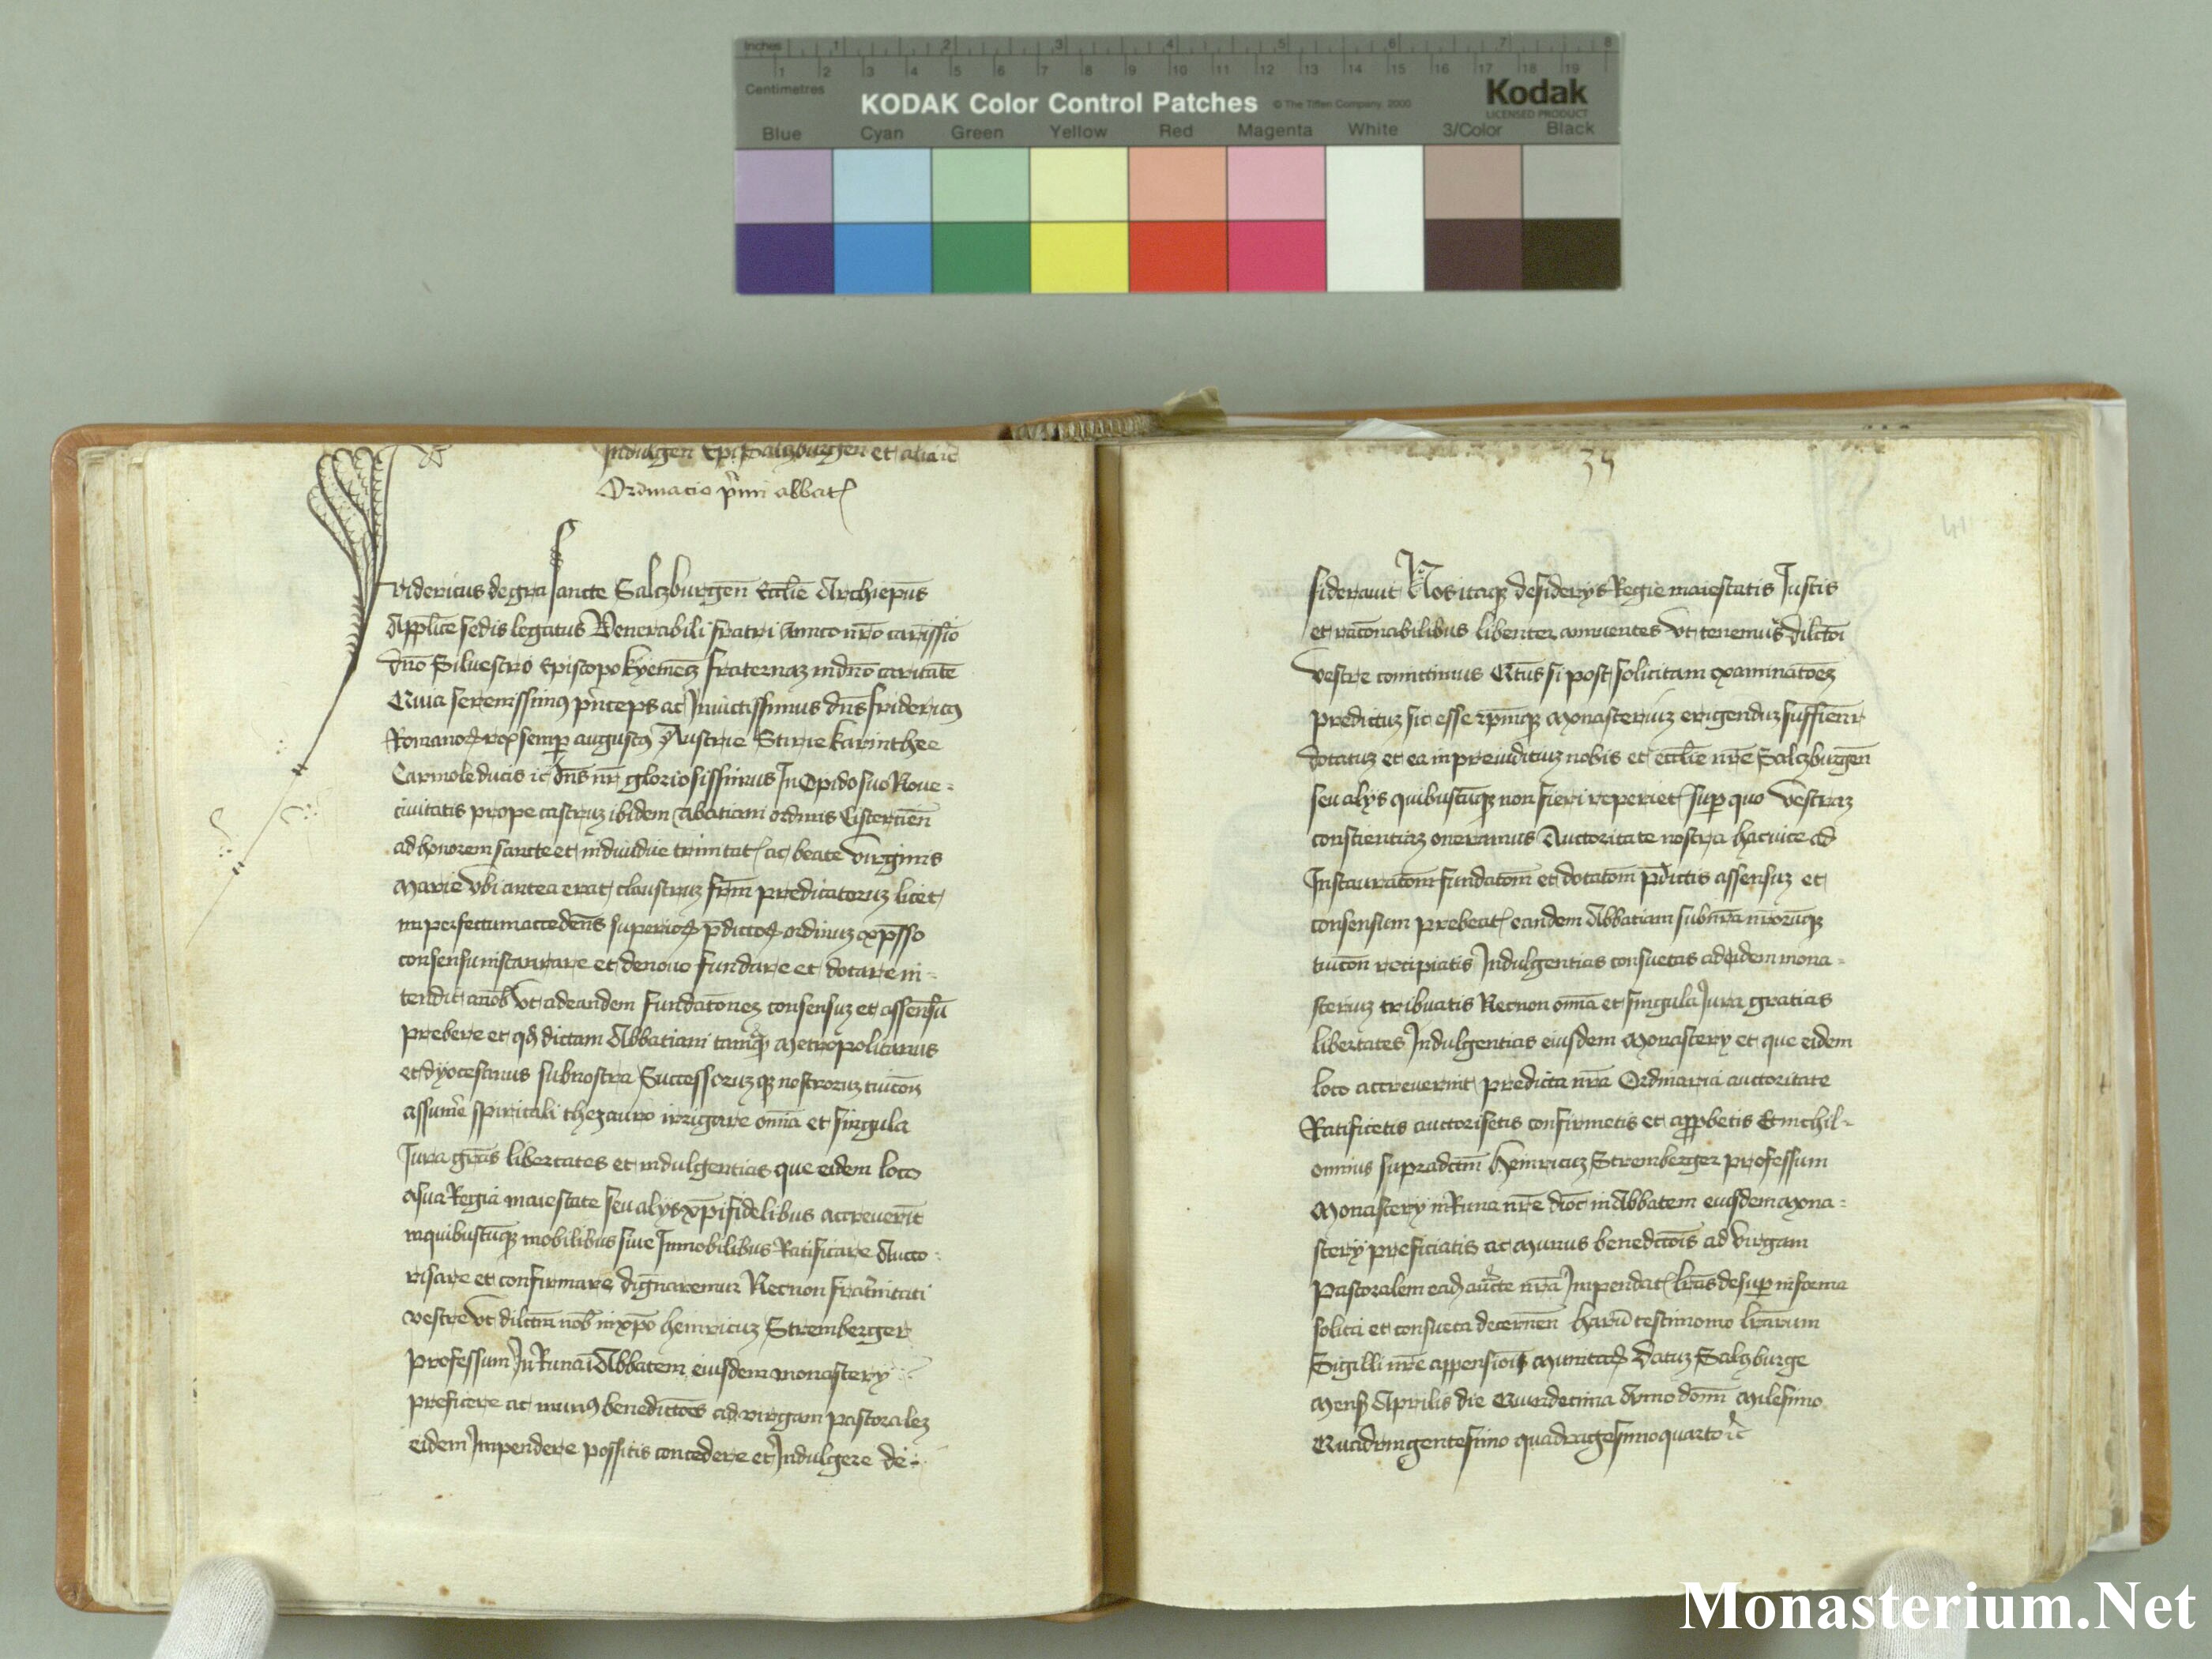 Inches 1 2 3 4 5 6 7 8
1 2 3 4 5 6 7 8 9 10 11 12 13 14 15 16 17 18 19
Centimetres
KODAK Color Control Patches © The Tiffen Company, 2000 Kodak
LICENSED PRODUCT
Blue Cyan Green Yellow Red Magenta White 3/Color Black
Indulgen Epi Salczburgen et alia
Ordinacio p̄mi abbat
ridericus de gra sancte Salczburgen̄ Eccl̄ie Archiep̄us
Appl̄ice sedis legatus Venerabili fratri Amico nr̄o carissīo
dn̄o Siluestro Episcopo kyemen̄ fraternaz in dn̄o caritatē
Quia serenissimꝰ pn̄ceps ac Inuictissimus dn̄s fridericꝰ
Romanoꝝ rex semꝑ augustꝰ Austrie Stirie karinthee
Carniole ducis ic̄ dn̄s nr̄ gloriosissimus In Opido suo Noue-
ciuitatis prope castruz ibidem abatiam ordinis Cistercien̄
ad honorem sancte et indiuidue trinitat ac beate virginis
Marie vbi antea erat claustruz fr̄m predicatoruz licet
imperfectum accedens superioꝝ p̄dictoꝝ ordinuz exp̄sso
consensu instaurare et denouo fundare et dotare in-
tendit a nob vt ad eandem fundatōnez consensuz et assensū
prebere et qd dictam Abbatiam tamq̄ Metropolitanus
et dyocesanus sub nostra Successoruzqꝫ nostroruz tuicōn
assumē spirituali thezauro irrigare om̄ia et singula
Iura gr̄as libertates et indulgentias que eidem loco
a sua Regia maiestate seu alys xp̄ifidelibus accreuerīt
in quibuscūqꝫ mobilibus siue Inmobilibus Ratificare Aucto-
risare et confirmare dignaremur Necnon frat̄nitati
vestre vt dilc̄m nob in xp̄o heinricuz Stremberger
professum In Runa ī Abbatem eiusdem monastery
preficere ac munꝰ benedictōis ad virgam pastoralez
eidem Impendere possitis concedere et Indulgere de-
35
41
siderauit Nos itaqꝫ desiderys Regie maiestatis Iustis
et racōnabilibus libenter annuentes vt tenemur dilctōi
vestre comittimus Qtus si post solicitam examinatōez
predictuz sic esse ip̄mqꝫ Monasteriuz erigenduz sufficienr
dotatuz et ea in preiudicuz nobis et eccl̄ie nr̄e Salczburgen̄
seu alys quibuscūqꝫ non fieri reperiet suꝑ quo vestraz
conscientiaz oneramus Auctoritate nostra hac vice ad
Instauratōm fundatōm et dotatōm p̄dictis assensuz et
consensum prebeat eandem Abbatiam sub nr̄a nr̄orūqꝫ
tuicōn recipiatis Indulgentias consuetas ad eidem mona-
steriuz tribuatis Necnon om̄ia et singula Iura gratias
libertates Indulgentias eiusdem Monastery et que eidem
loco accreuerint predicta nr̄a Ordinaria auctoritate
Ratificetis auctorisetis confirmetis et appbetis Et nichil-
ominus supradctm̄ heinricuz Stremberger professum
Monastery in Runa nr̄e dioc in Abbatem eiusdem Mona-
stery preficiatis ac Munus benedictōis ad virgam
Pastoralem ead auc̄te nr̄a Impendat lr̄as desuꝑ in forma
solita et consueta decernen̄ harū testimonio lr̄arum
Sigilli nr̄i appensiōis Munitaꝝ Datuz Salczburge
Mens Aprilis die Quindecima Anno domī Milesimo
Quadringentesimo quadragesimoquarto ic̄
Monasterium.Net